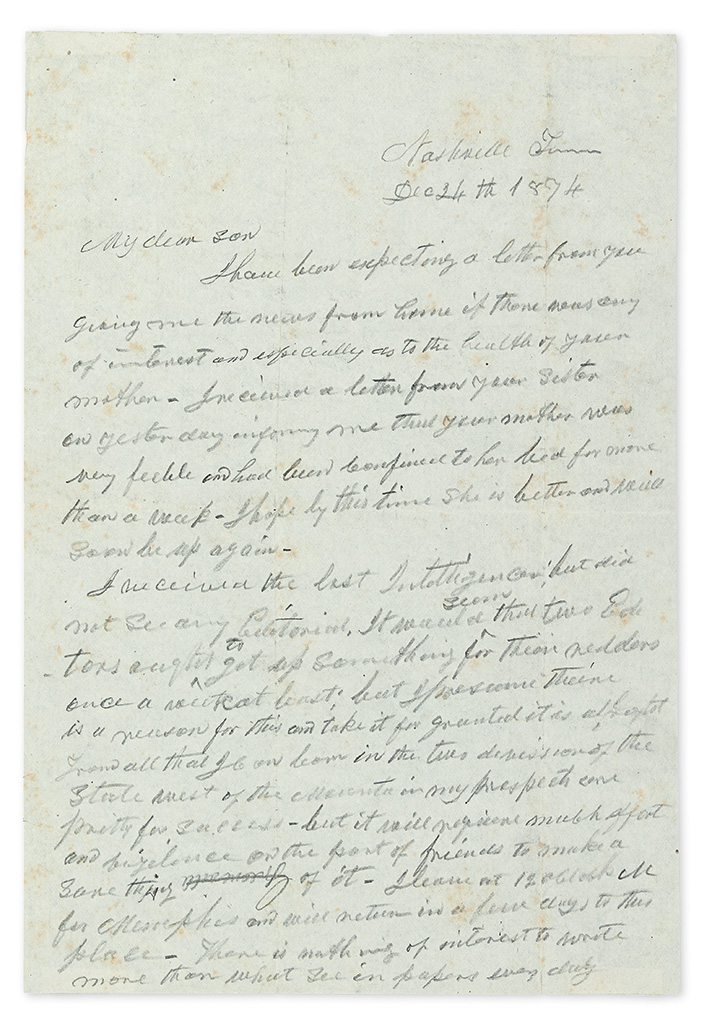 Nashville Tenn
Dec 24th 1874
My dear Son
I have been expecting a letter from you
giving me the news from home if there was any
of interest and especially as to the health of your
mother - I received a letter from your Sister
on yesterday informg me that your mother was
very feeble and had been confined to her bed for more
than a week - I hope by this time She is better and will
soon be up again -
I received the last Intelligencer, but did
not See any Editorial, It would seem that two Edi
tors aught to got up Something for their redders
once a week at least; but I presume their
is a reason for this and take it for granted it is all right
From all that I can learn in the two devission of the
State west of the Mounta in my prospects are
pretty for Success - but it will require much effort
and vigilance on the part of friends to make a
Sure thing of it - I leave at 12 oclock M
for Memphis and will return in a few days to this
place - There is nothing of interest to wrote
more than what See in papers every day